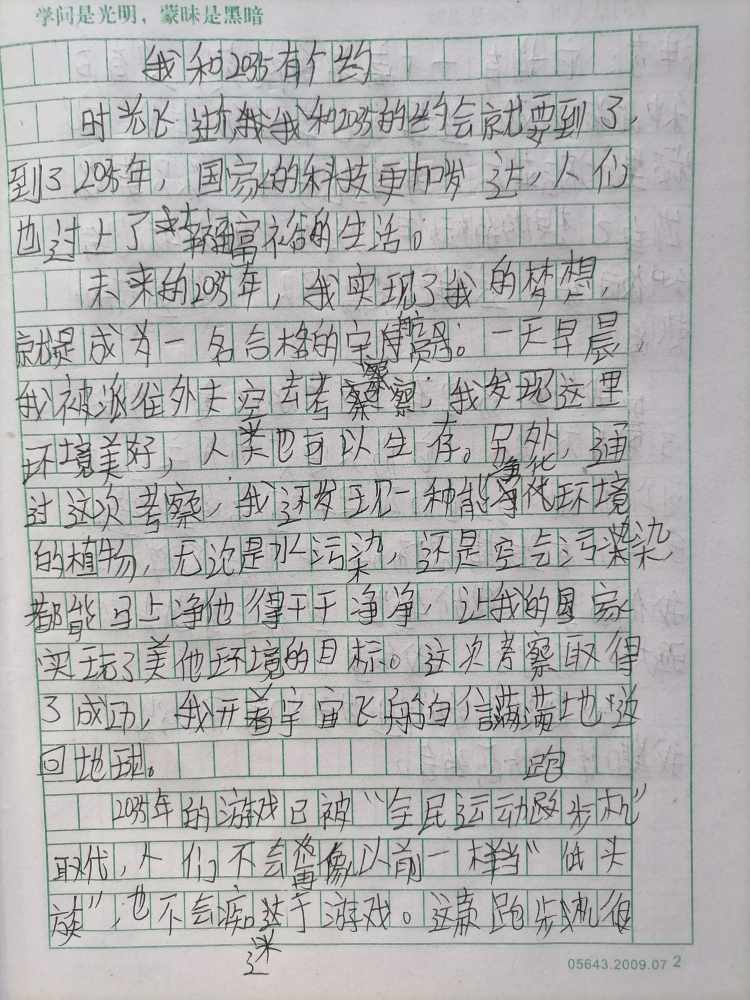 学问是光明，蒙昧是黑暗
我和2035有个约
时光飞逝，我和2035的约会就要到了，
到了2035年，国家的科技更加发达，人们
也过上了幸福富裕的生活。
未来的2035年，我实现了我的梦想，
就是成为一名合格的宇航员。一天早晨，
我被派往外太空去考察，我发现这里
环境美好，人类也可以生存。另外，通
过这次考察，我还发现一种能净化环境
的植物，无论是水污染，还是空气污染
都能马上净化得干干净净，让我的国家
实现了美化环境的目标。这次考察取得
了成功，我开着宇宙飞船自信满满地返
回地球。
2035年的游戏已被“全民运动跑步机”
取代，人们不会再像以前一样当“低头
族”，也不会痴迷于游戏。这款跑步机很
05643.2009.07 2